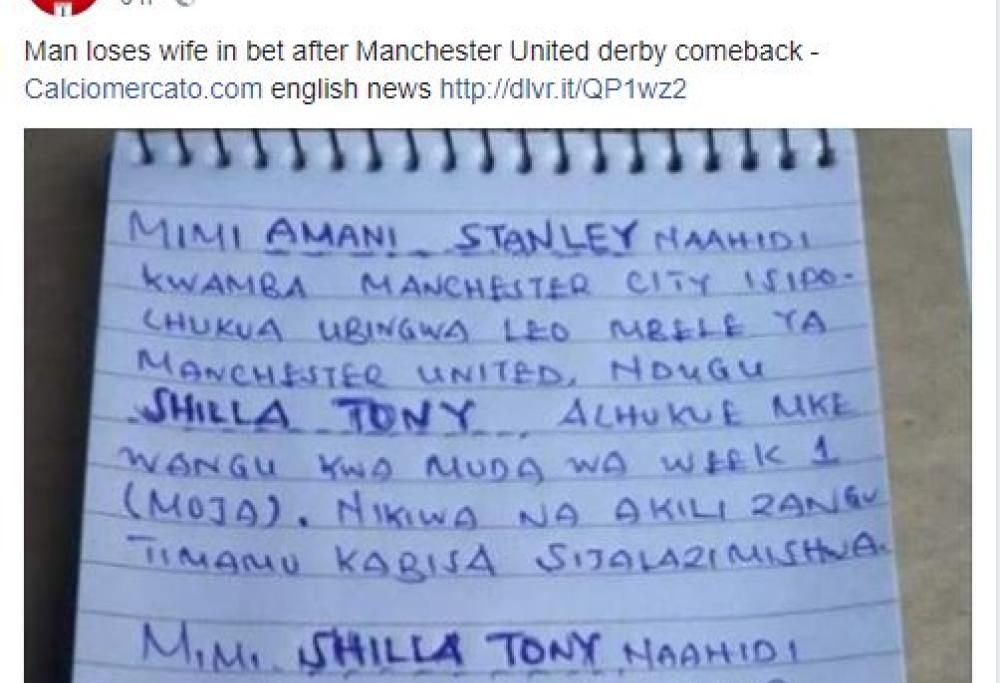 Man loses wife in bet after Manchester United derby comeback -
Calciomercato.com english news http://dlvr.it/QP1wz2
MIMI AMANI STANLEY NAAHIDI
KWAMBA MANCHESTER CITY ISIPO-
CHUKUA UBINGWA LEO MBELE YA
MANCHESTER UNITED, NDUGU
SHILLA TONY ACHUKUE MKE
WANGU KWA MUDA WA WEEK 1
(MOJA). NIKIWA NA AKILI ZANGU
TIMAMU KABISA SIJALAZIMISHWA.
MIMI SHILLA TONY NAAHIDI